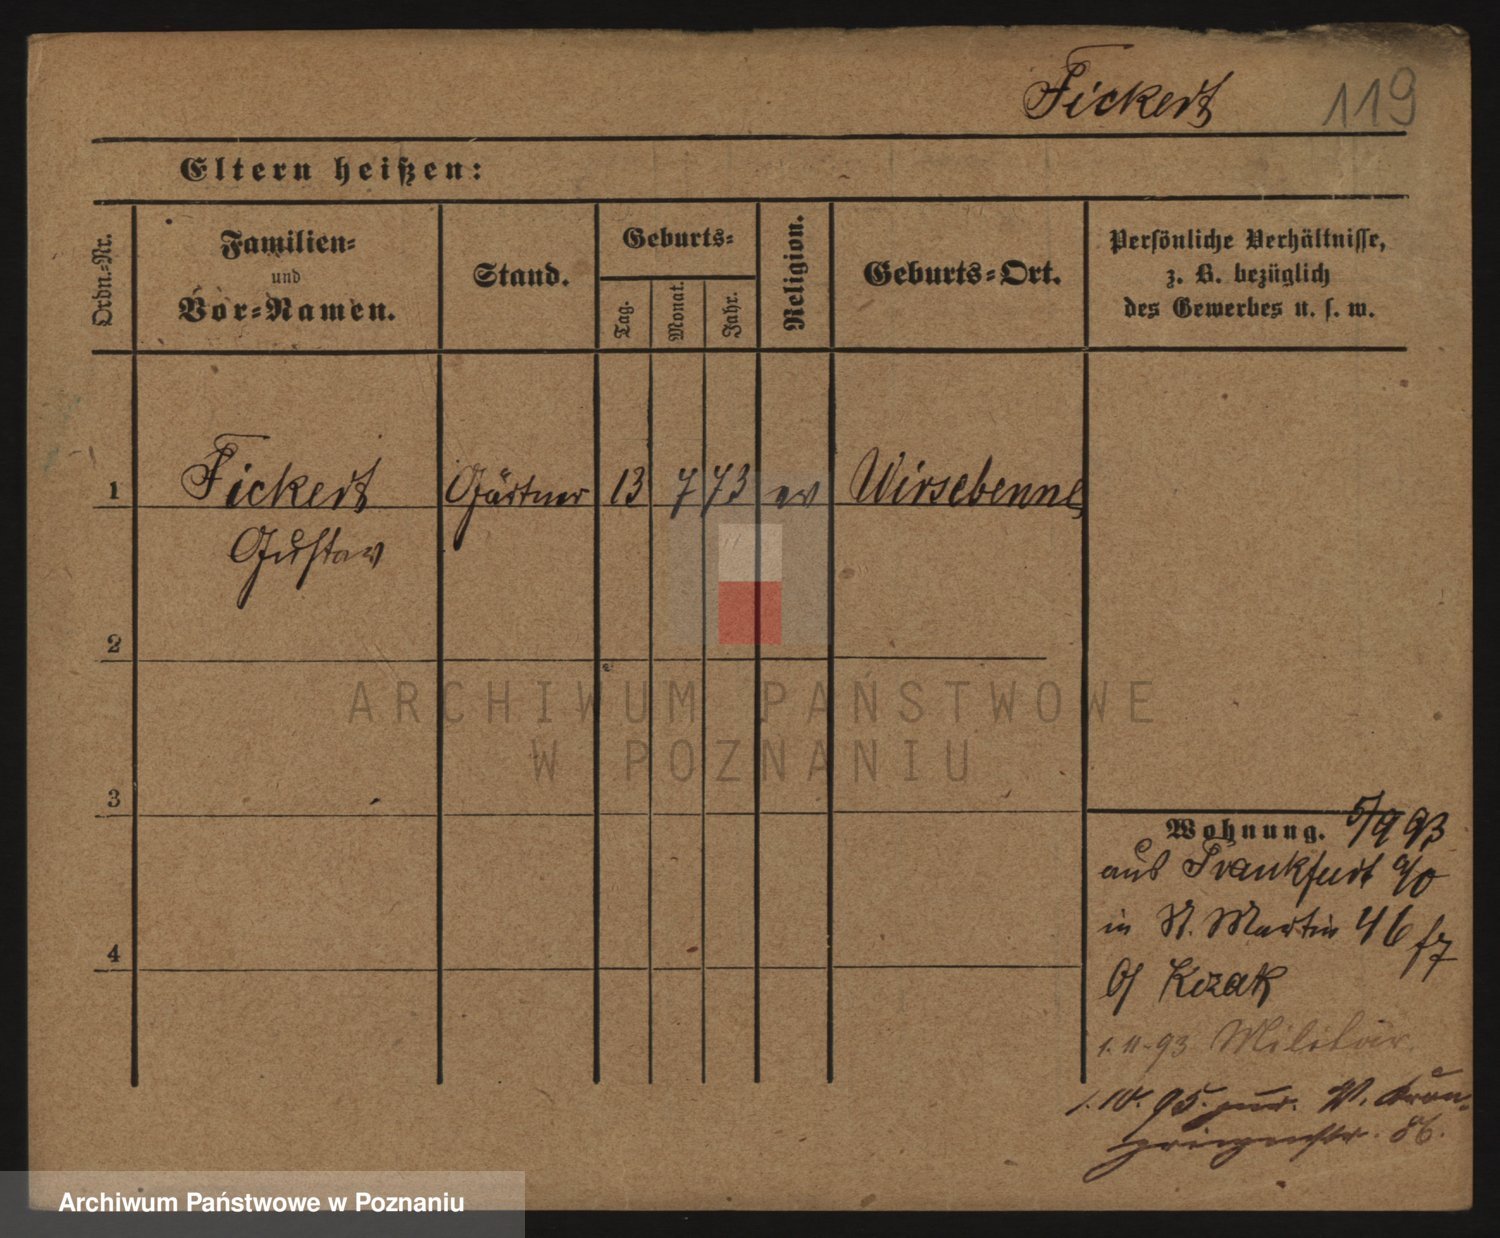 Fickert 119
Eltern heißen:
Ordn.-Nr.
Familien-
und
Vor-Namen.
Stand.
Geburts-
Tag.
Monat.
Jahr.
Religion.
Geburts-Ort.
Persönliche Verhältnisse,
z. B. bezüglich
des Gewerbes u. s. w.
1 Fickert Gärtner 13 7 73 ev Wirsebenne
Gustav
2
3
4
Wohnung. 5/9 93
aus Frankfurt a/O
in St. Martin 46
b/ Kozak
1.11.93 Militär.
1.10.95. zur. W. Kron-
prinzenstr. 86.
ARCHIWUM PAŃSTWOWE
W POZNANIU
Archiwum Państwowe w Poznaniu